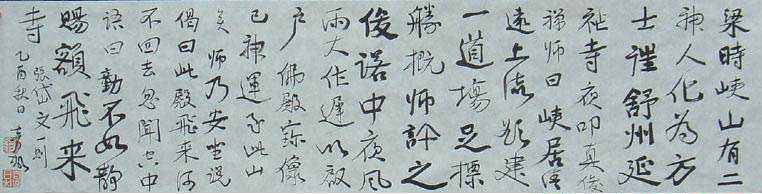 梁時峡山有二
神人化為方
士往舒州延
祚寺夜叩真俊
禅師曰峡居清
遠上流欲建
一道場足標
勝概師許之
俊諾中夜風
雨大作遲明啟
户佛殿寳像
已神運至此山
矣師乃安坐説
偈曰此殿飛来何
不回去忽聞空中
語曰動不如静
賜額飛来
寺
張岱文一則
乙酉秋日